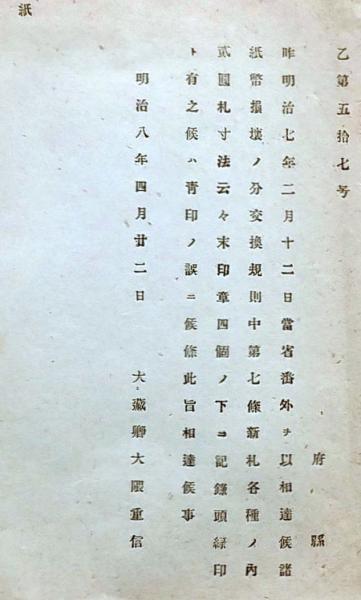 乙第五拾七号
府縣
昨明治七年二月十二日當省番外ヲ以相達候諸
紙幣損壞ノ分交換規則中第七條新札各種ノ內
貳圓札寸法云々末印章四個ノ下ヨ記錄頭緑印
ト有之候ハ青印ノ誤ニ候條此旨相達候事
明治八年四月廿二日
大藏卿大隈重信
紙